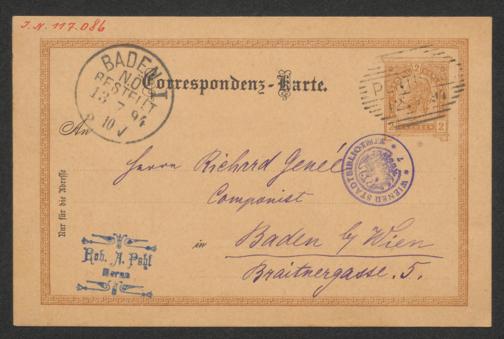 I. N. 117.086
BADEN 1
N.Ö.
BESTELLT
13. 7. 94
Correspondenz-Karte.
2
2
An
Herrn Richard Genée
Componist
in Baden b/ Wien
Braitnergasse. 5.
Nur für die Adresse
WIENER STADTBIBLIOTHEK
Rob. A. Pohl